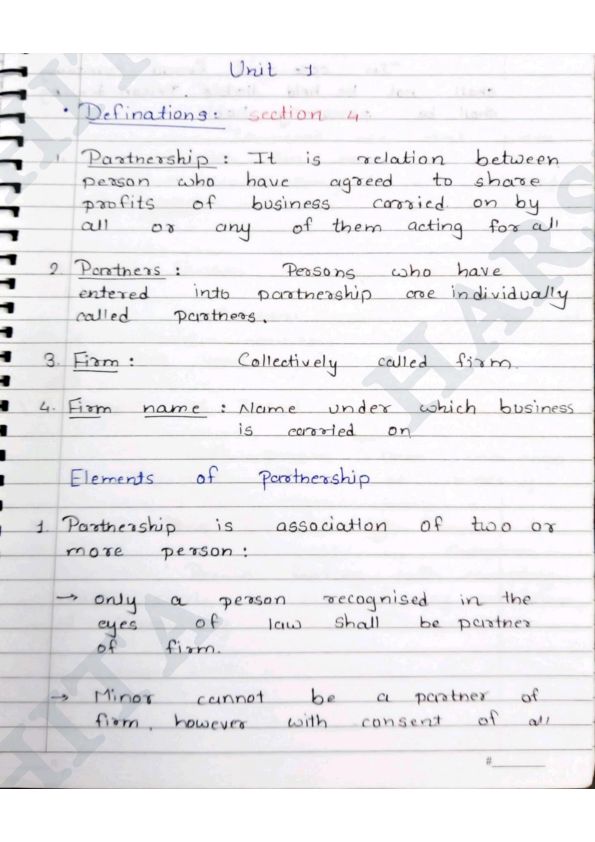 Unit - 1
• Definations: section 4:
1. Partnership : It is relation between
person who have agreed to share
profits of business carried on by
all or any of them acting for all
2. Partners : Persons who have
entered into partnership are individually
called partners.
3. Firm : Collectively called firm.
4. Firm name : Name under which business
is carried on
Elements of Partnership
1. Partnership is association of two or
more person :
→ only a person recognised in the
eyes of law shall be partner
of firm.
→ Minor cannot be a partner of
firm, however with consent of all
#